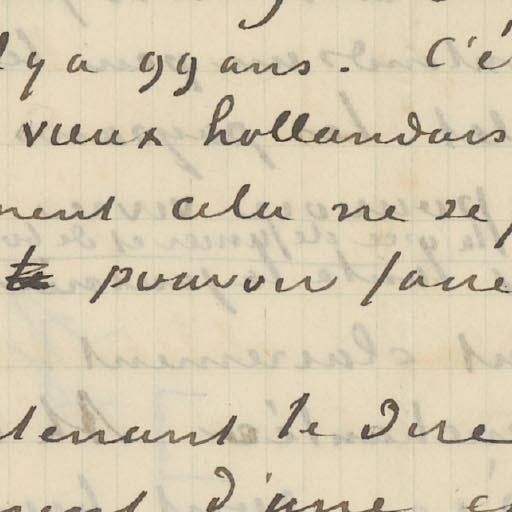 y a 99 ans. C'é
vieux hollandais
ment cela ne se
pouvoir faire
tenant le dire
d'une